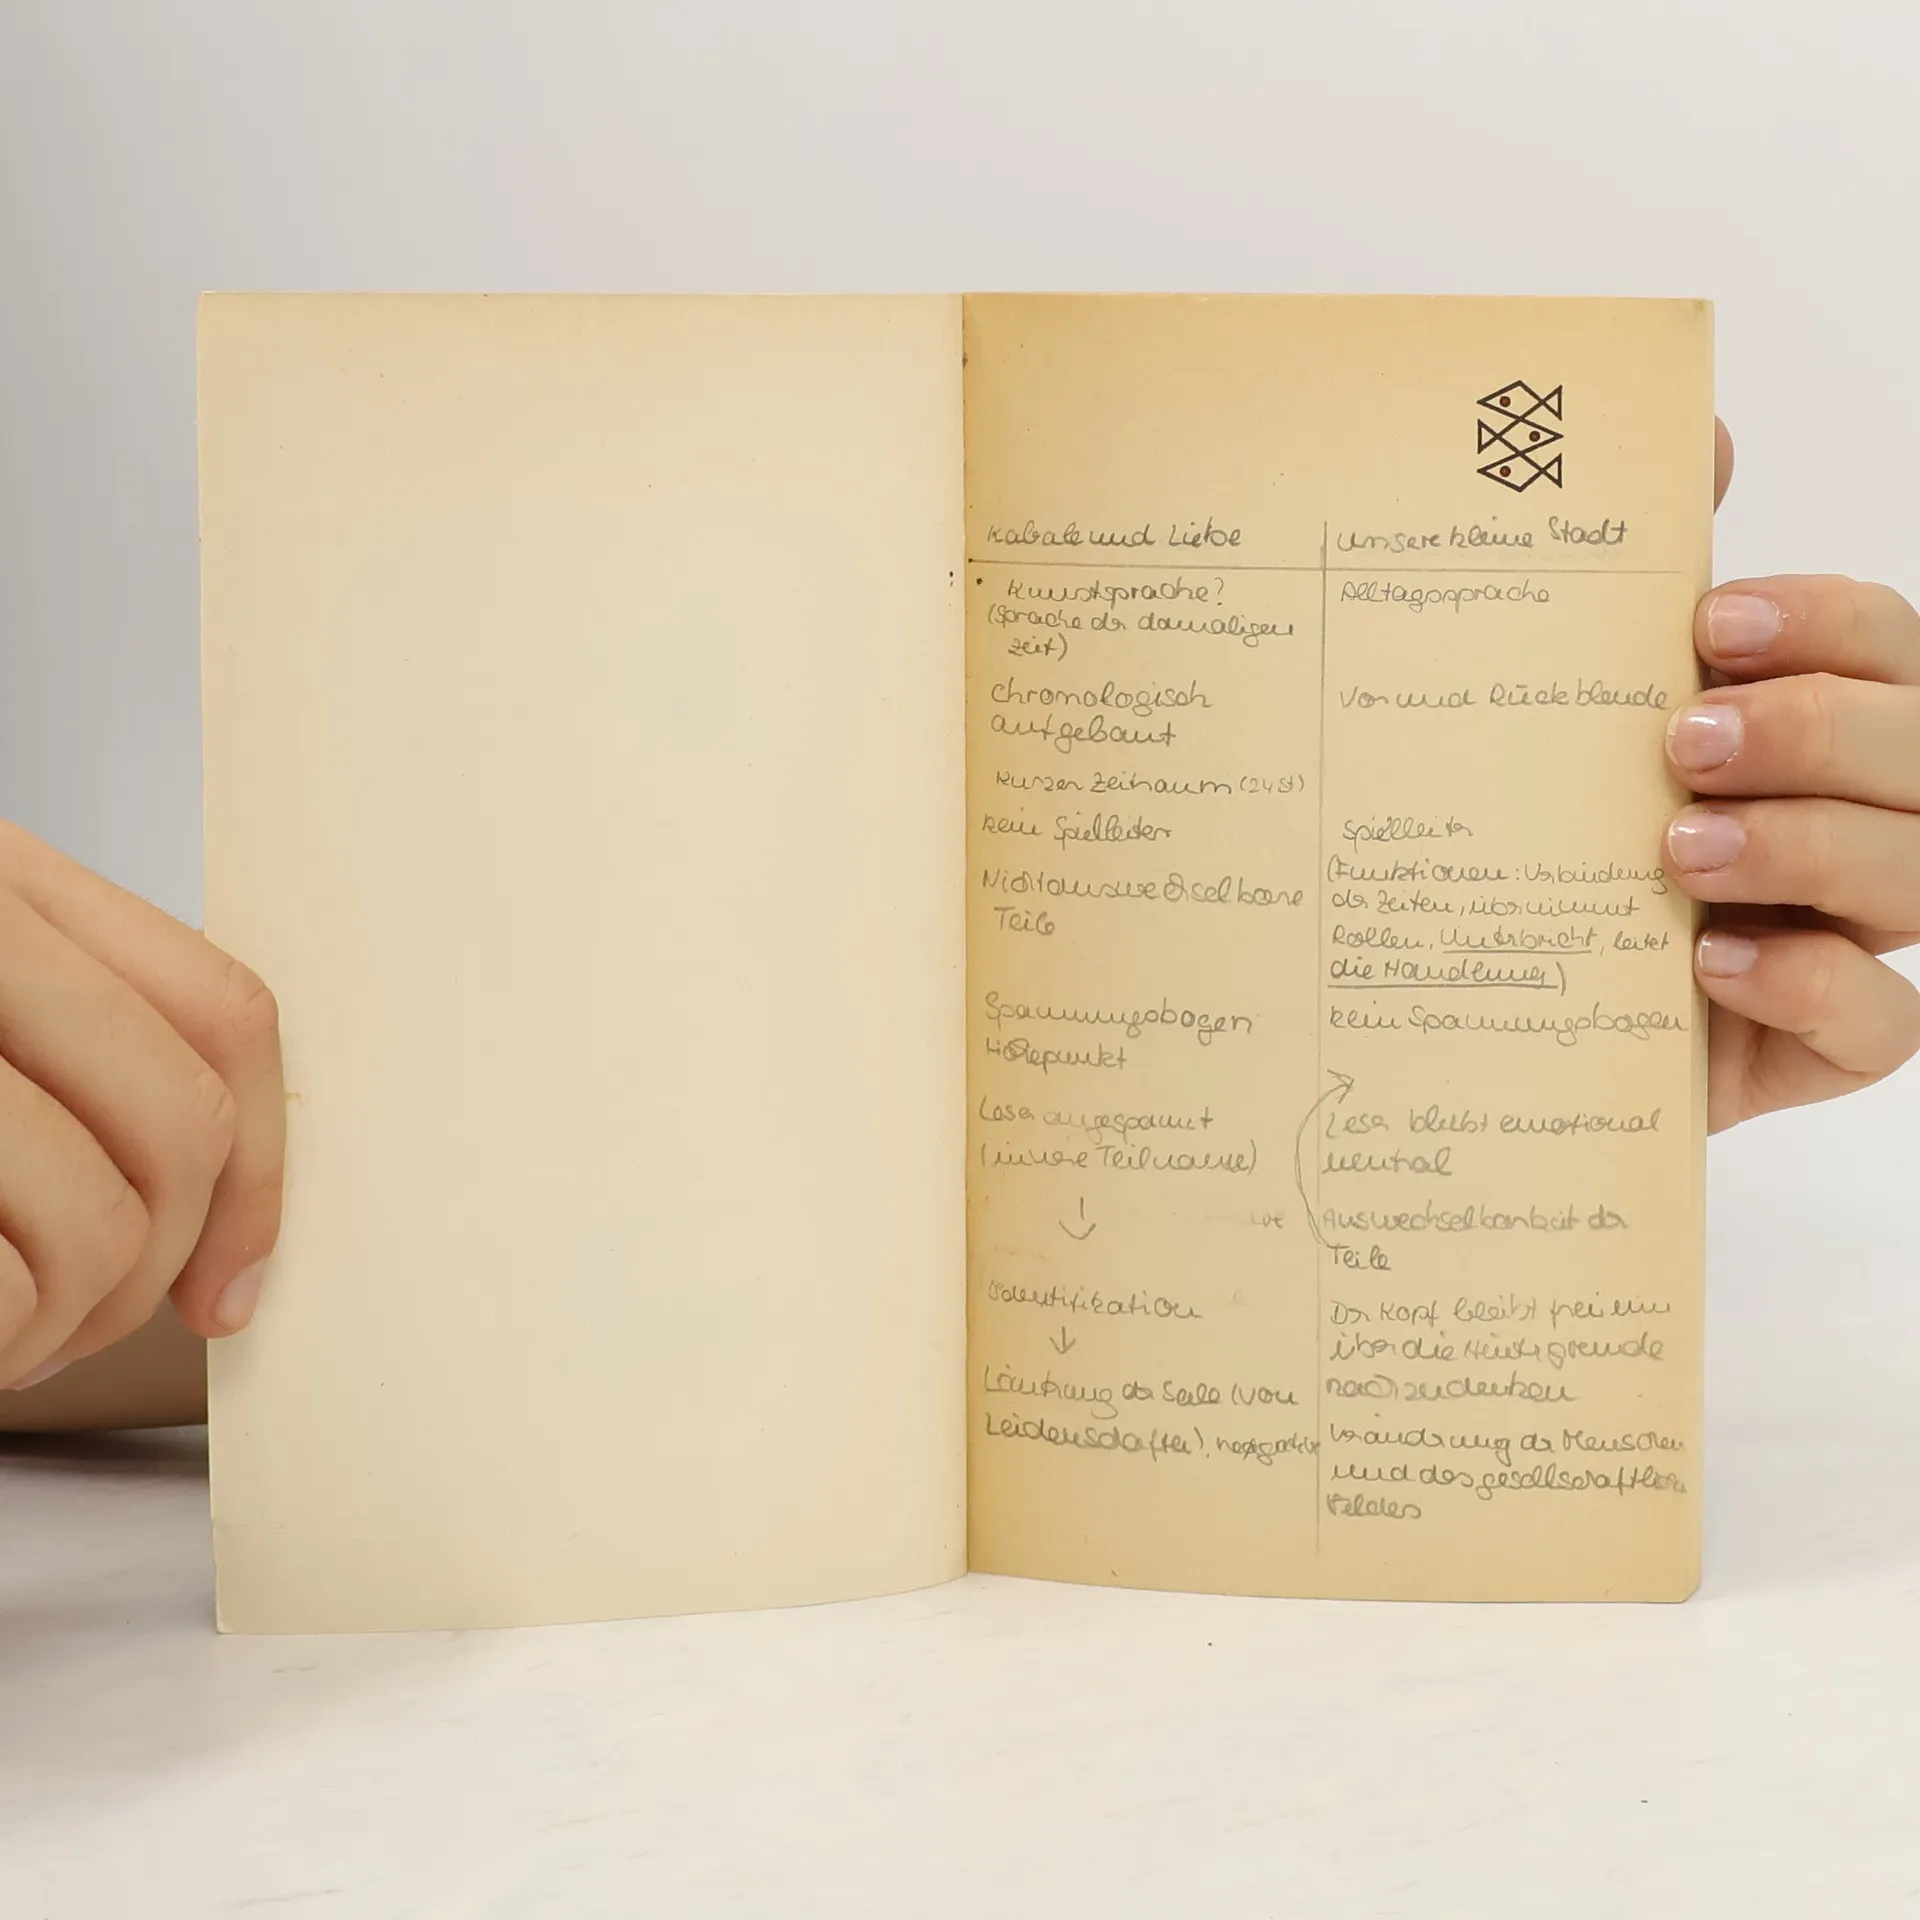 Kabale und Liebe
Kunstsprache?
(Sprache der damaligen
Zeit)
chronologisch
aufgebaut
kurzer Zeitraum (24 St)
kein Spielleiter
Nichtauswechselbare
Teile
Spannungsbogen
Höhepunkt
Leser angespannt
(innere Teilname)
↓
Identifikation
↓
Läuterung der Seele (von
Leidenschaften),
unsere kleine Stadt
Alltagssprache
Vor und Rückblende
Spielleiter
(Funktionen: Verbindung
der Zeiten, übernimmt
Rollen, Unterbricht, leitet
die Handlung)
kein Spannungsbogen
Leser bleibt emotional
neutral
Auswechselbarkeit der
Teile
Der Kopf bleibt frei um
über die Hintergründe
nachzudenken
Veränderung der Menschen
und des gesellschaftlichen
Feldes